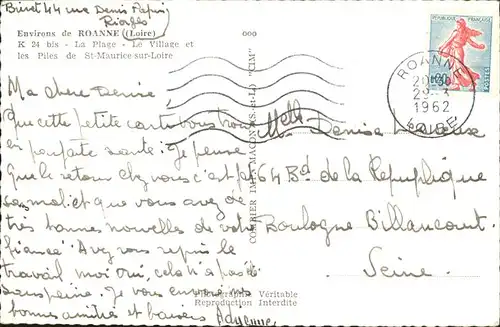 Biret 44 rue Denis Papin
Riorges
Environs de ROANNE (Loire)
K 24 bis - La Plage - Le Village et
les Piles de St-Maurice-sur-Loire
000
Ma chère Denise
Que cette petite carte vous trouve
en parfaite santé. Je pense
que le retour chez vous s'est passé
sans et que vous avez de
très bonnes nouvelles de votre
fiancé. Avez vous repris le
travail moi oui, cela n'a pas été
sans peine. Je vous envoie nos
bonnes amitiés et baisers
COMBIER IMP. MACON (S.-et-L.) "CIM"
Photographie Véritable
Reproduction Interdite
RÉPUBLIQUE FRANÇAISE
0,20
POSTES
ROANNE
20H30
1962
LOIRE
Melle Denise
64 Bd de la République
Boulogne Billancourt
Seine